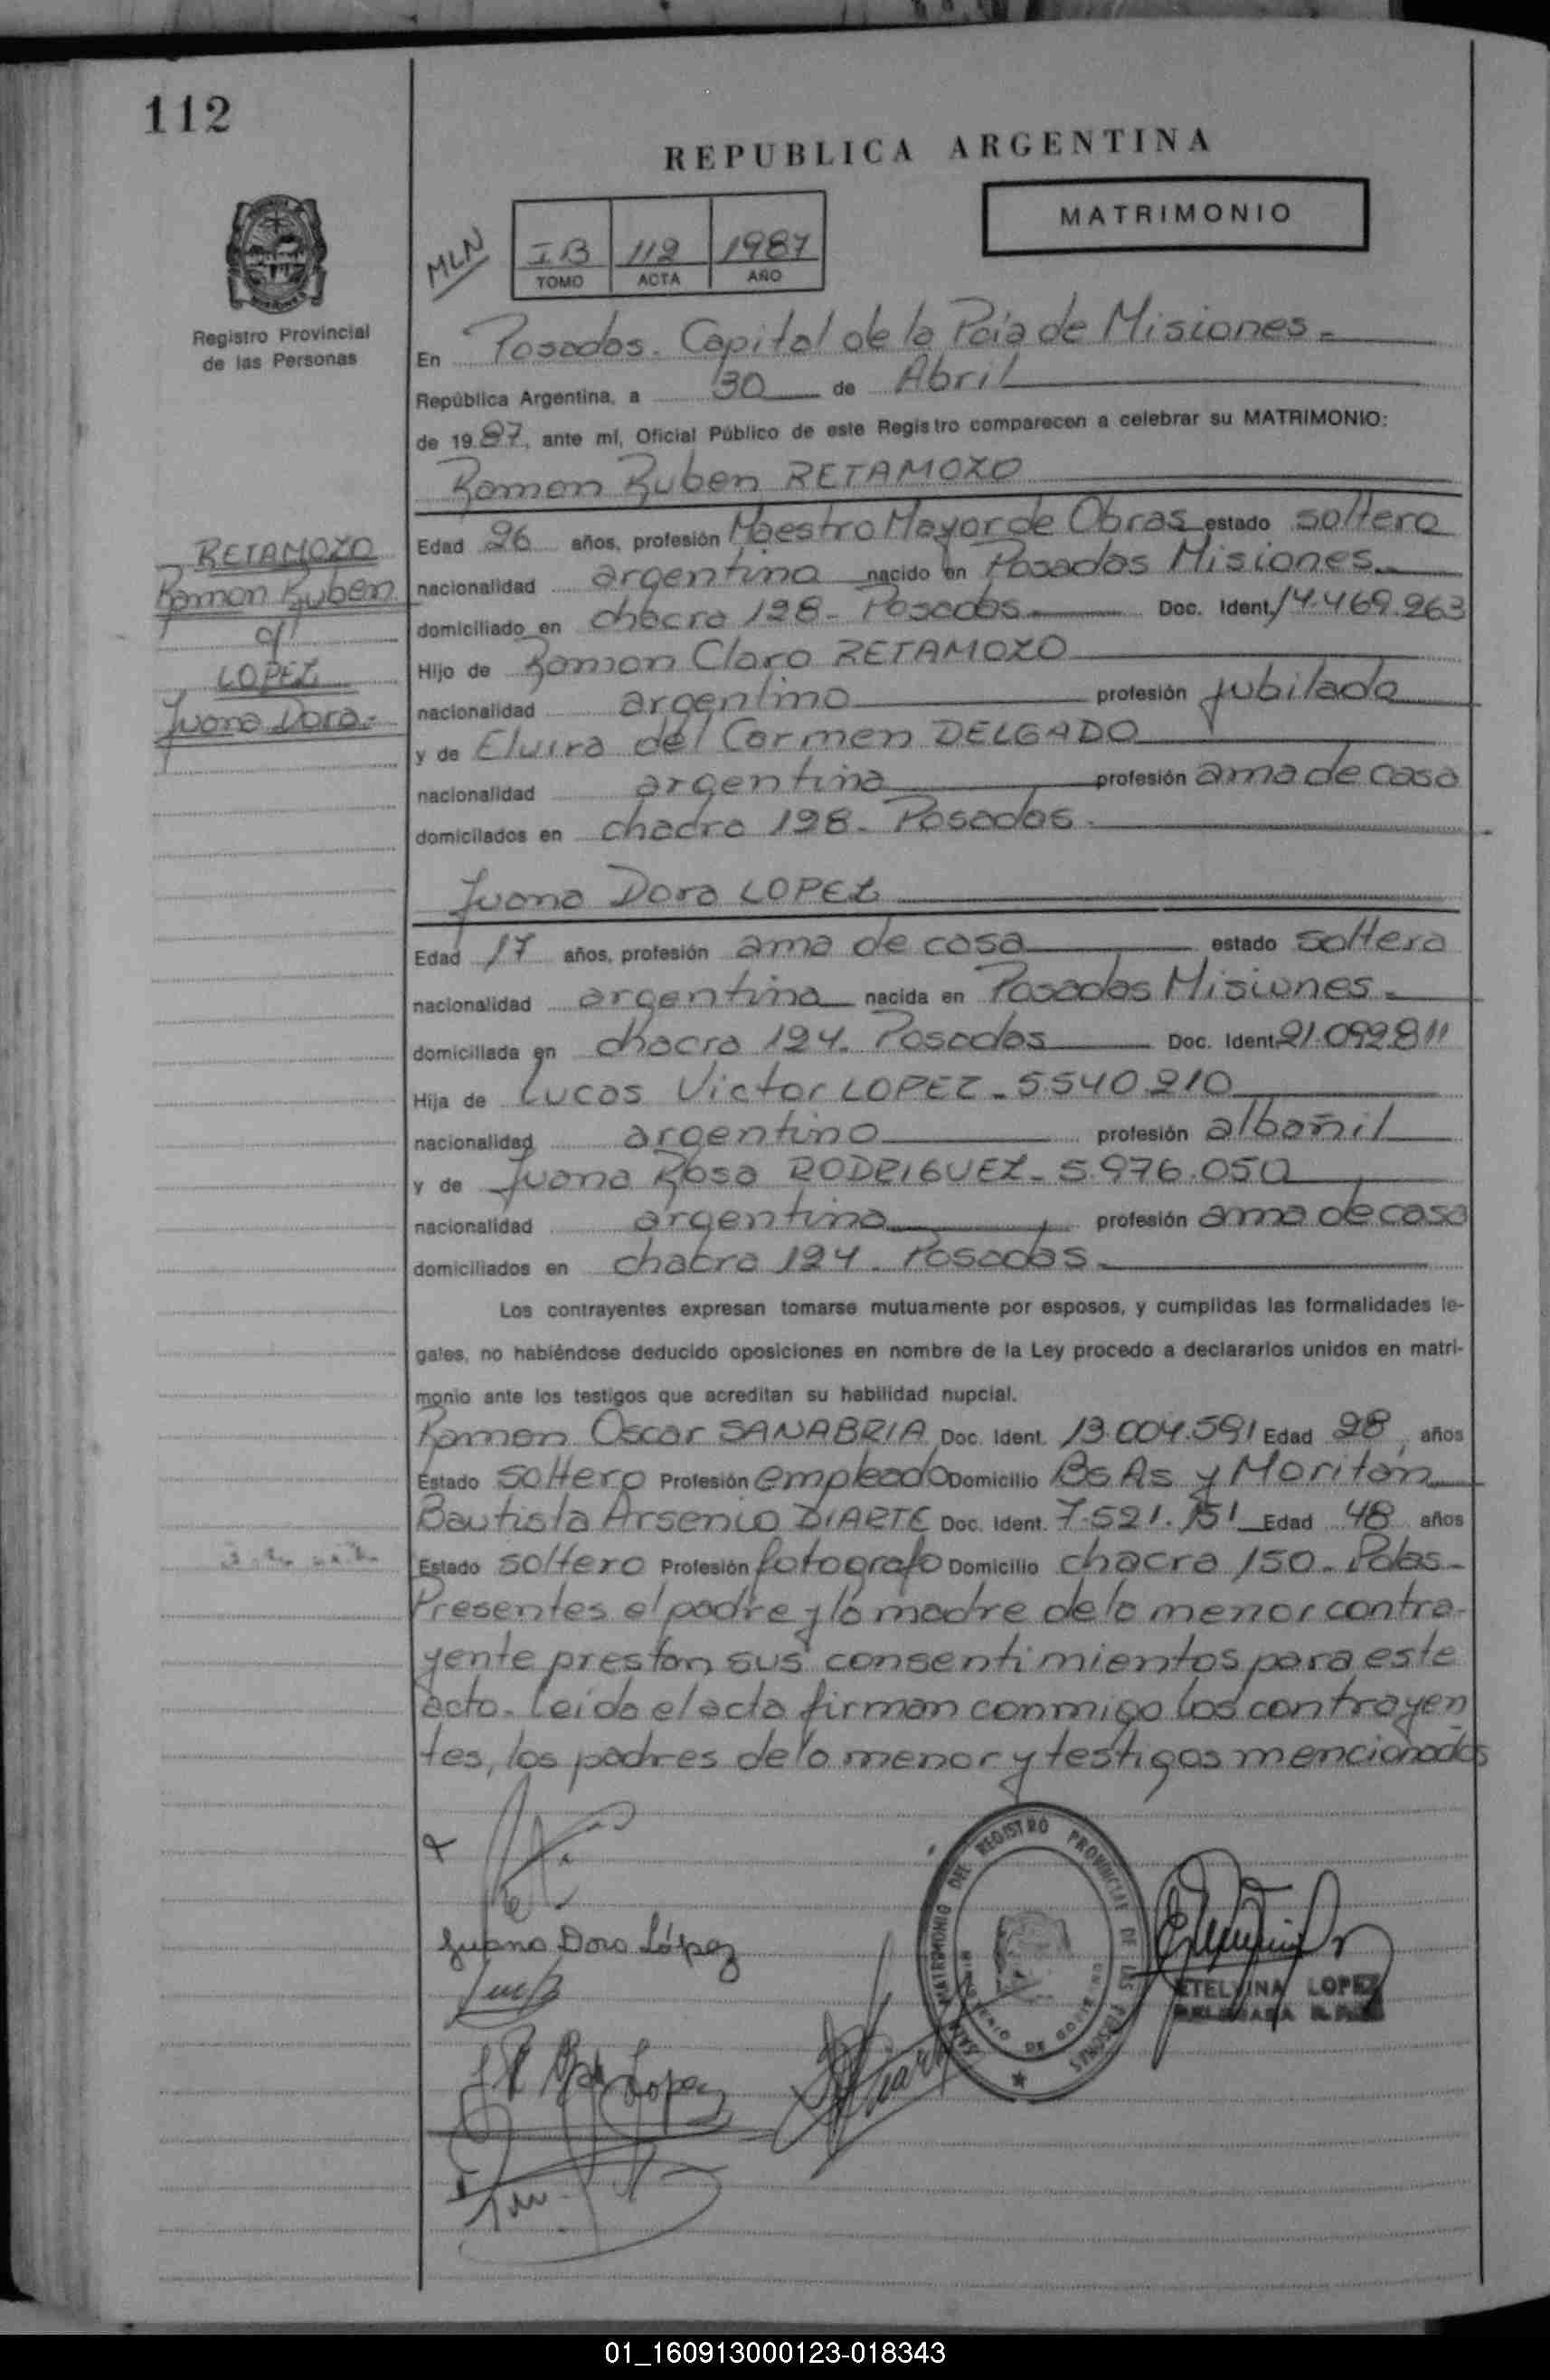 112
REPUBLICA ARGENTINA
MATRIMONIO
MLN
IB 112 1987
TOMO ACTA AÑO
Registro Provincial
de las Personas
En Posadas. Capital de la Pcia de Misiones.
República Argentina, a 30 de Abril
de 1987, ante mí, Oficial Público de este Registro comparecen a celebrar su MATRIMONIO:
Ramon Ruben RETAMOZO
RETAMOZO
Ramon Ruben
c/
LOPEZ
Juana Dora.-
Edad 26 años, profesión Maestro Mayor de Obras estado soltero
nacionalidad argentina nacido en Posadas Misiones.
domiciliado en chacra 128. Posadas Doc. Ident. 14.469.263
Hijo de Ramon Claro RETAMOZO
nacionalidad argentino profesión jubilado
y de Elvira del Carmen DELGADO
nacionalidad argentina profesión ama de casa
domicilados en chacra 128. Posadas.
Juana Dora LOPEZ
Edad 17 años, profesión ama de casa estado soltera
nacionalidad argentina nacida en Posadas Misiones.
domiciliada en chacra 124. Posadas Doc. Ident. 21.092.811
Hija de Lucas Victor LOPEZ - 5.540.210
nacionalidad argentino profesión albañil
y de Juana Rosa RODRIGUEZ - 5.976.050
nacionalidad argentina profesión ama de casa
domiciliados en chacra 124. Posadas.
Los contrayentes expresan tomarse mutuamente por esposos, y cumplidas las formalidades le-
gales, no habiéndose deducido oposiciones en nombre de la Ley procedo a declararlos unidos en matri-
monio ante los testigos que acreditan su habilidad nupcial.
Ramon Oscar SANABRIA Doc. Ident. 13.004.591 Edad 28, años
Estado soltero Profesión empleado Domicilio Bs As y Moritan
Bautista Arsenio DIARTE Doc. Ident. 7.521.151 Edad 48 años
Estado soltero Profesión fotografo Domicilio chacra 150. Pdas.
Presentes el padre y la madre de la menor contra-
yente prestan sus consentimientos para este
acto. Leida el acta firman conmigo los contrayen
tes, los padres de la menor y testigos mencionados
Juana Dora López
Lopez
MATRIMONIO DEL REGISTRO PROVINCIAL DE LAS PERSONAS
MINISTERIO DE GOBIERNO
ETELVINA LOPEZ
01_160913000123-018343